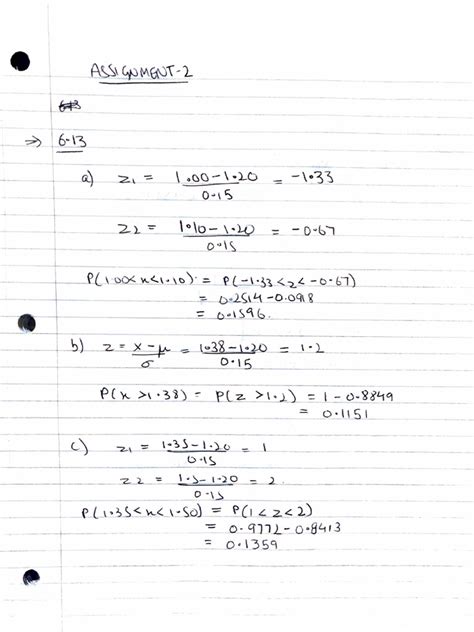 ASSIGNMENT-2
⇒ 6.13
a) z1 = (1.00-1.20)/0.15 = -1.33
z2 = (1.10-1.20)/0.15 = -0.67
P(1.00<x<1.10) = P(-1.33<z<-0.67)
= 0.2514-0.0918
= 0.1596.
b) z = (x-μ)/σ = (1.38-1.20)/0.15 = 1.2
P(x>1.38) = P(z>1.2) = 1-0.8849
= 0.1151
c) z1 = (1.35-1.20)/0.15 = 1
z2 = (1.5-1.20)/0.15 = 2.
P(1.35<x<1.50) = P(1<z<2)
= 0.9772-0.8413
= 0.1359